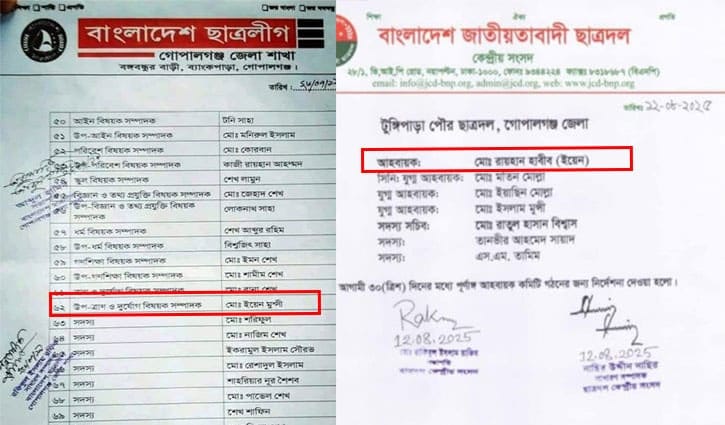 শিক্ষা ঐক্য প্রগতি
বাংলাদেশ ছাত্রলীগ
গোপালগঞ্জ জেলা শাখা
বঙ্গবন্ধুর বাড়ী, ব্যাংকপাড়া, গোপালগঞ্জ।
তারিখ:
৫০ আইন বিষয়ক সম্পাদক টনি সাহা
৫১ উপ-আইন বিষয়ক সম্পাদক মোঃ মনিরুল ইসলাম
৫২ পরিবেশ বিষয়ক সম্পাদক মোঃ কোরবান
উপ-পরিবেশ বিষয়ক সম্পাদক কাজী রায়হান আহম্মদ
স্কুল বিষয়ক সম্পাদক শেখ লামুন
বিজ্ঞান ও তথ্য প্রযুক্তি বিষয়ক সম্পাদক মোঃ জেহাদ শেখ
উপ-বিজ্ঞান ও তথ্য প্রযুক্তি বিষয়ক সম্পাদক লোকনাথ সাহা
৫৭ ধর্ম বিষয়ক সম্পাদক শেখ আব্দুর রহিম
৫৮ উপ-ধর্ম বিষয়ক সম্পাদক বিশ্বজিৎ সাহা
৫৯ গণশিক্ষা বিষয়ক সম্পাদক মোঃ ইমন শেখ
৬০ উপ-গণশিক্ষা বিষয়ক সম্পাদক মোঃ শামীম শেখ
৬১ ত্রাণ ও দুর্যোগ বিষয়ক সম্পাদক মোঃ রানা শেখ
৬২ উপ-ত্রাণ ও দুর্যোগ বিষয়ক সম্পাদক মোঃ ইয়েন মুন্সী
৬৩ সদস্য মোঃ শরিফুল
৬৪ সদস্য মোঃ নাজিম শেখ
সদস্য ইকরামুল ইসলাম সৌরভ
সদস্য মোঃ রেশাদুল ইসলাম
৬৭ সদস্য শাহরিয়ার নূর শৈশব
৬৮ সদস্য মোঃ পাভেল শেখ
৬৯ সদস্য শেখ শাফিন
শিক্ষা ঐক্য প্রগতি
বাংলাদেশ জাতীয়তাবাদী ছাত্রদল
কেন্দ্রীয় সংসদ
২৮/১, ভি,আই,পি রোড, নয়াপল্টন, ঢাকা-১০০০, ফোনঃ ৯৩৪৪২২৪ ফ্যাক্সঃ ৮৩১৮৬৮৭ (বিএনপি)
email: info@jcd-bnp.org, admin@jcd.org, web: www.jcd-bnp.org
তারিখঃ ১২-০৮-২০২৫
টুঙ্গিপাড়া পৌর ছাত্রদল, গোপালগঞ্জ জেলা
আহবায়ক: মোঃ রায়হান হাবীব (ইয়েন)
সিনি: যুগ্ম আহবায়ক: মোঃ মতিন মোল্লা
যুগ্ম আহবায়ক: মোঃ ইয়াছিন মোল্লা
যুগ্ম আহবায়ক: মোঃ ইসলাম মুন্সী
সদস্য সচিব: মোঃ রাতুল হাসান বিশ্বাস
সদস্য: তানভীর আহমেদ সায়াদ
সদস্য: এস.এম. তামিম
আগামী ৩০(ত্রিশ) দিনের মধ্যে পূর্ণাঙ্গ আহবায়ক কমিটি গঠনের জন্য নির্দেশনা দেওয়া হলো।
12.08.2025
মোঃ রাকিবুল ইসলাম রাকিব
সভাপতি
ছাত্রদল কেন্দ্রীয় সংসদ
12.08.2025
নাছির উদ্দীন নাছির
সাধারণ সম্পাদক
ছাত্রদল কেন্দ্রীয় সংসদ